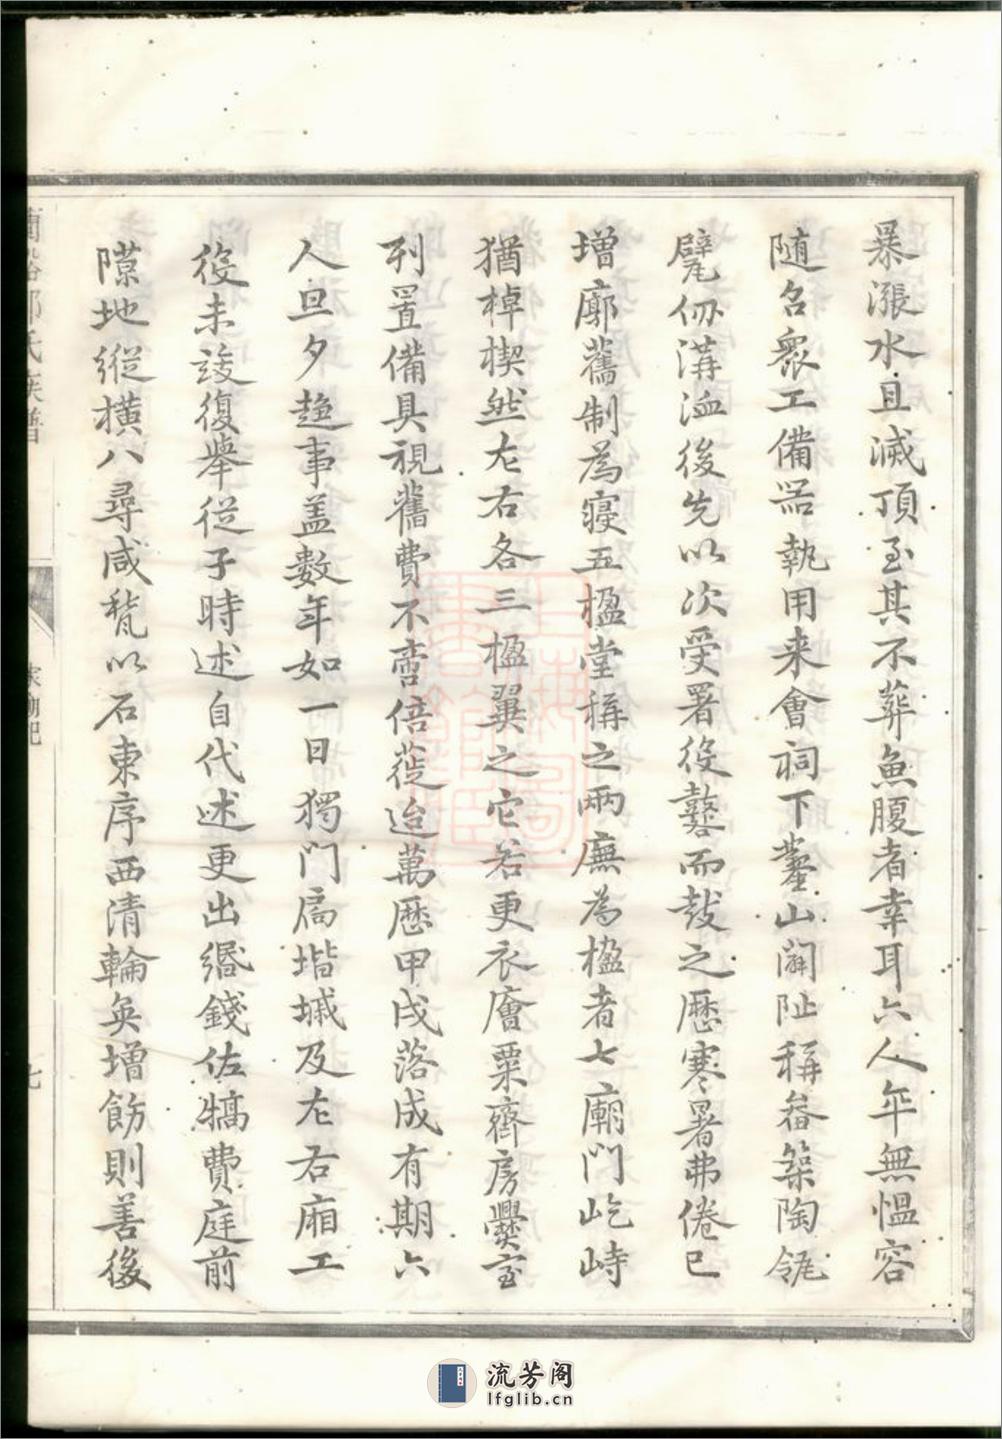 暴漲水且滅頂至其不葬魚腹者幸耳六人卒無慍容
随召衆工備器執用来會祠下鏨山闢阯稱畚築陶瓴
甓仞溝洫後先以次受署役藝而鼓之歷寒暑弗倦已
增廓舊制為寢五楹堂稱之兩廡為楹者七廟門屹峙
猶棹楔然左右各三楹翼之它若更衣廥粟齋房爨室
列置備具視舊費不啻倍蓰迨萬歷甲戌落成有期六
人旦夕趨事盖數年如一日獨門扃堦墄及左右廂工
役未竣復舉從子時述自代述更出緡錢佐犒費庭前
隙地縱橫八尋咸甃以石東序西清輪奐增飭則善後
蘭谿 氏族譜
家廟記
七
流芳阁
lfglib.cn